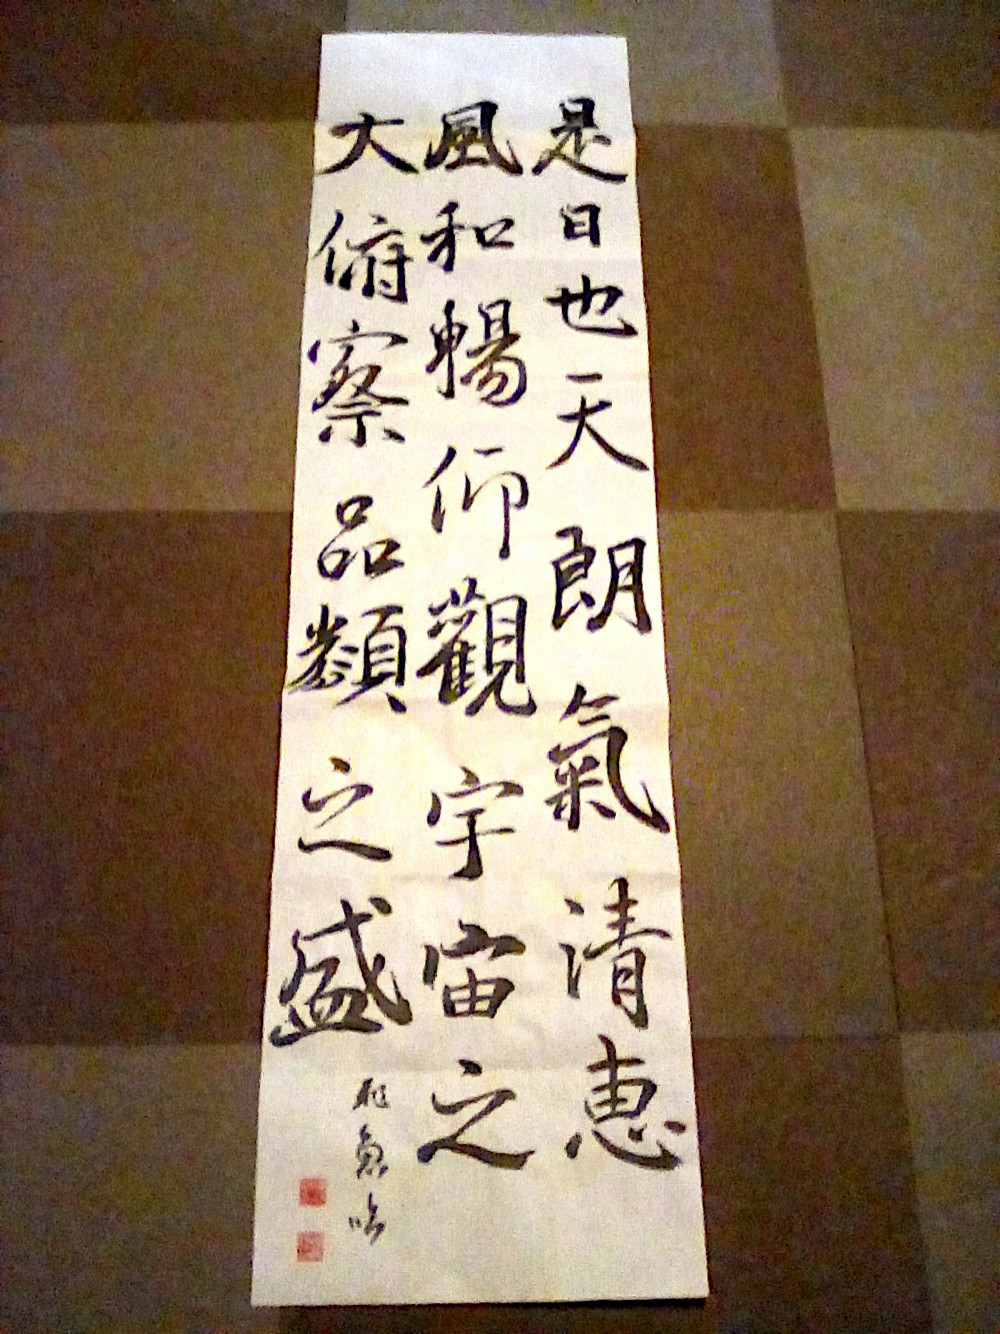 是日也天朗氣清惠
風和暢仰觀宇宙之
大俯察品類之盛
臨